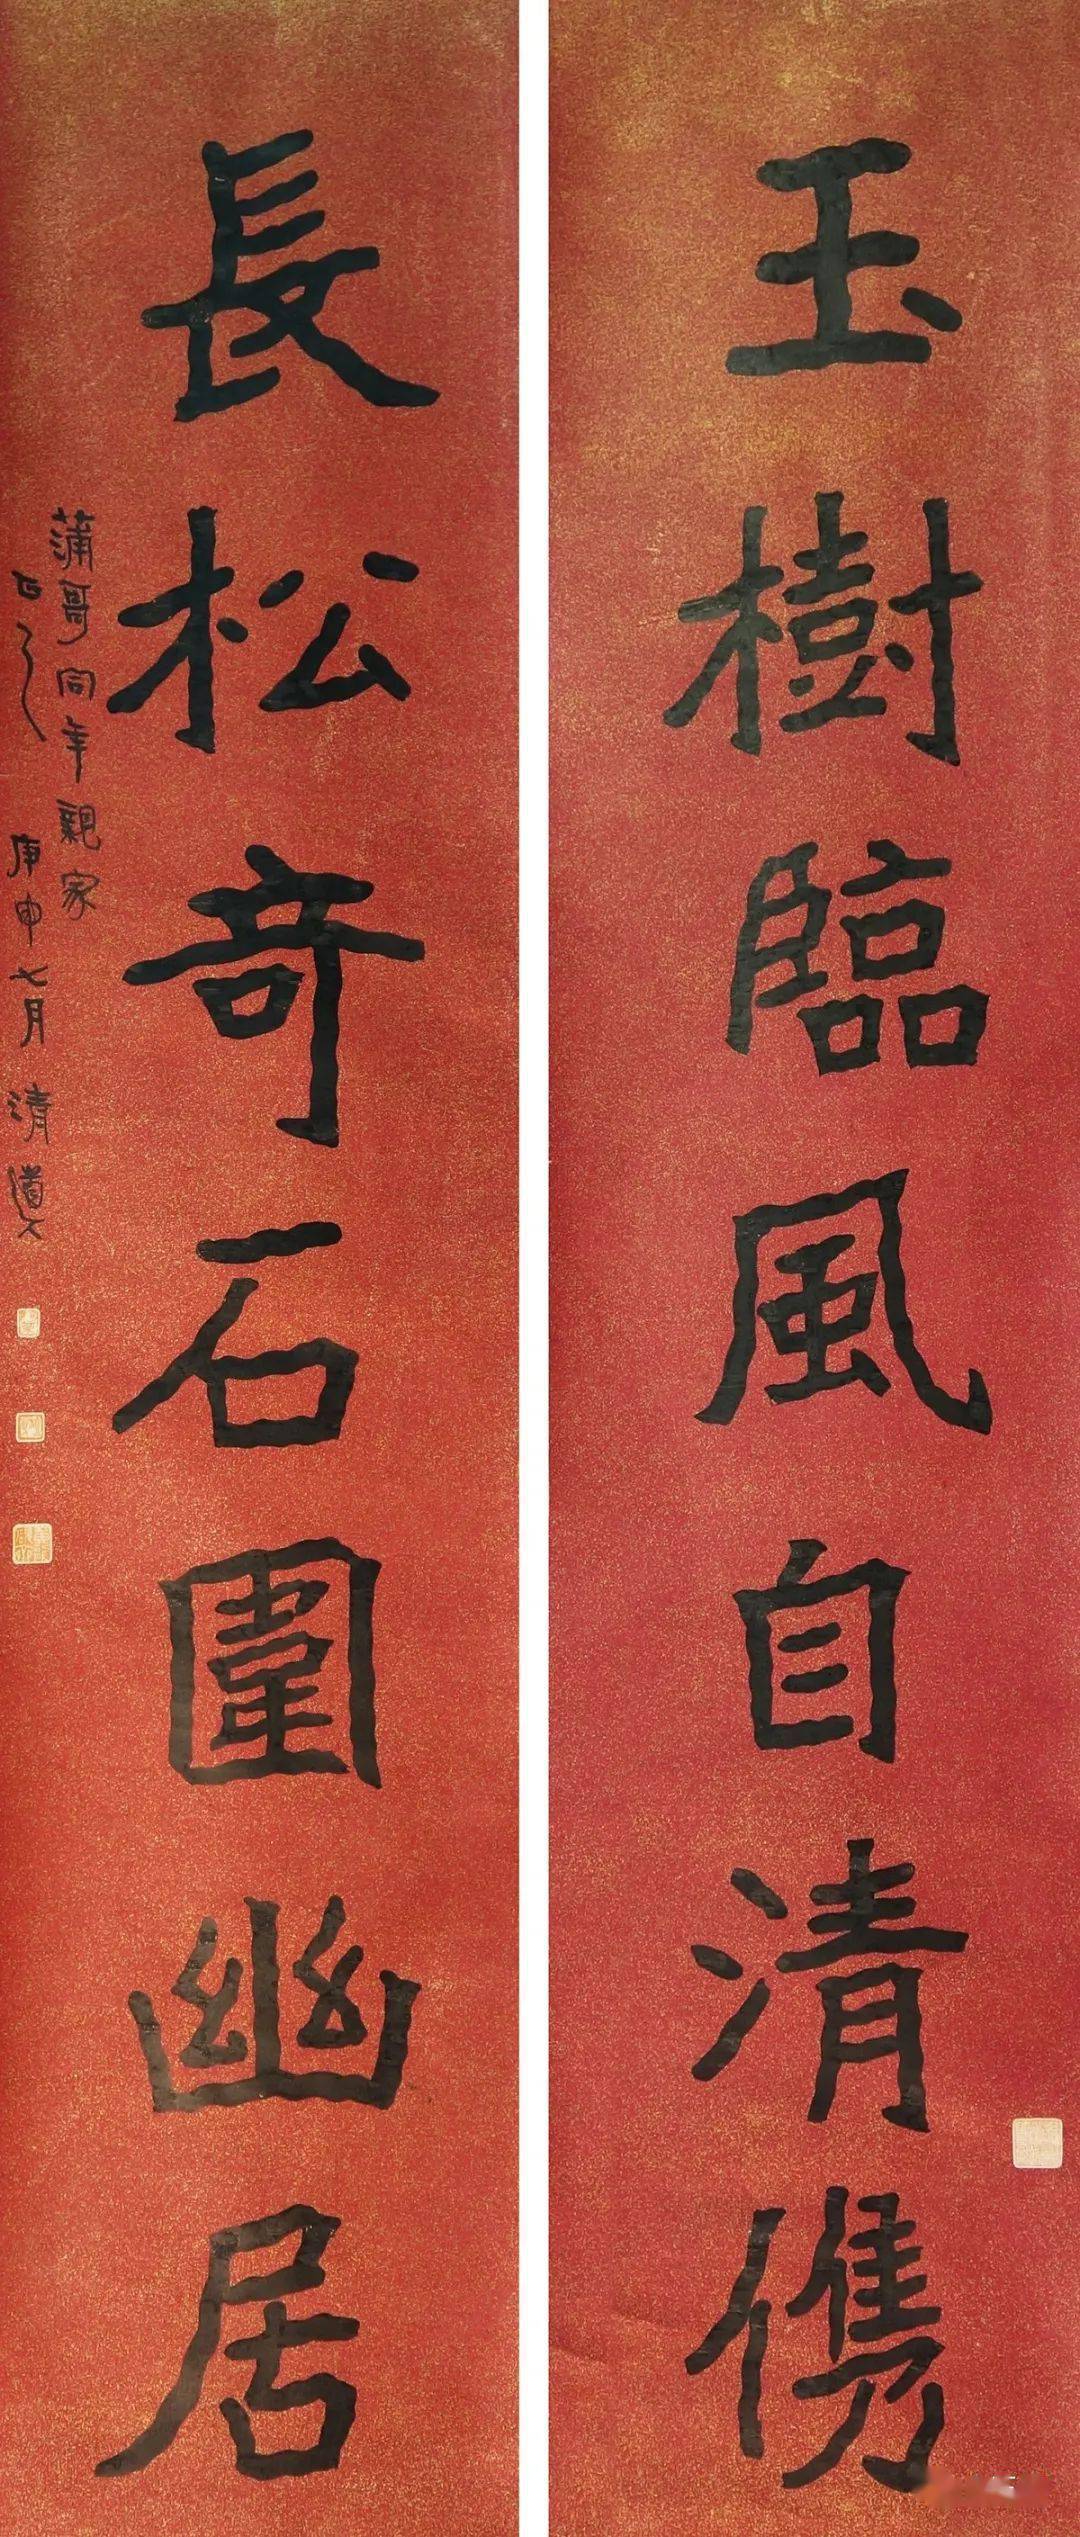 玉樹臨風自清儁
長松奇石圍幽居
蒲哥同年親家
正之 庚申七月 清道人